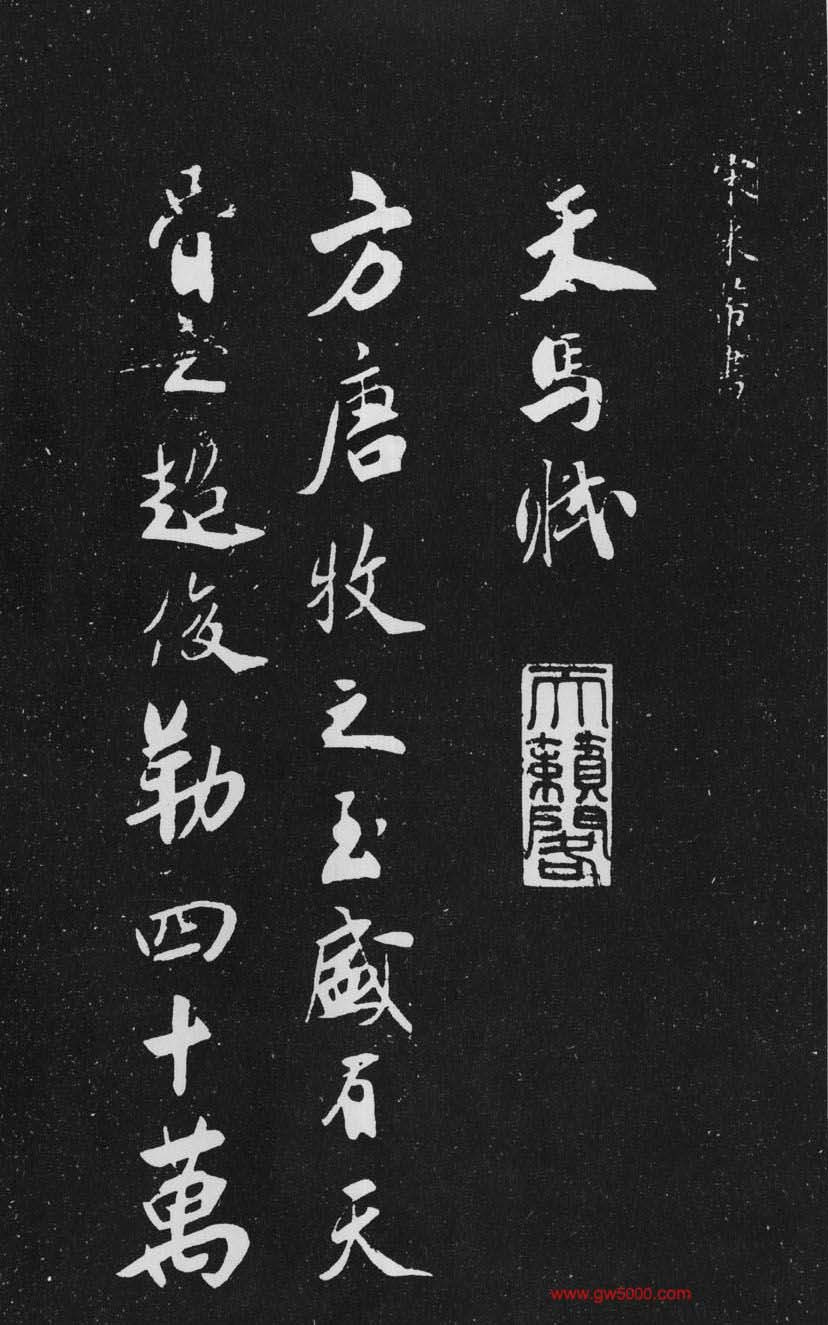 宋米芾書
天馬賦
天籟閣
方唐牧之至盛有天
骨之超俊勒四十萬
www.gw5000.com